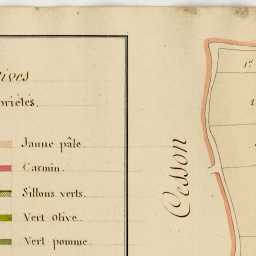 Jaune pâle
Carmin.
Sillons verts.
Vert olive.
Vert pomme.
Cesson